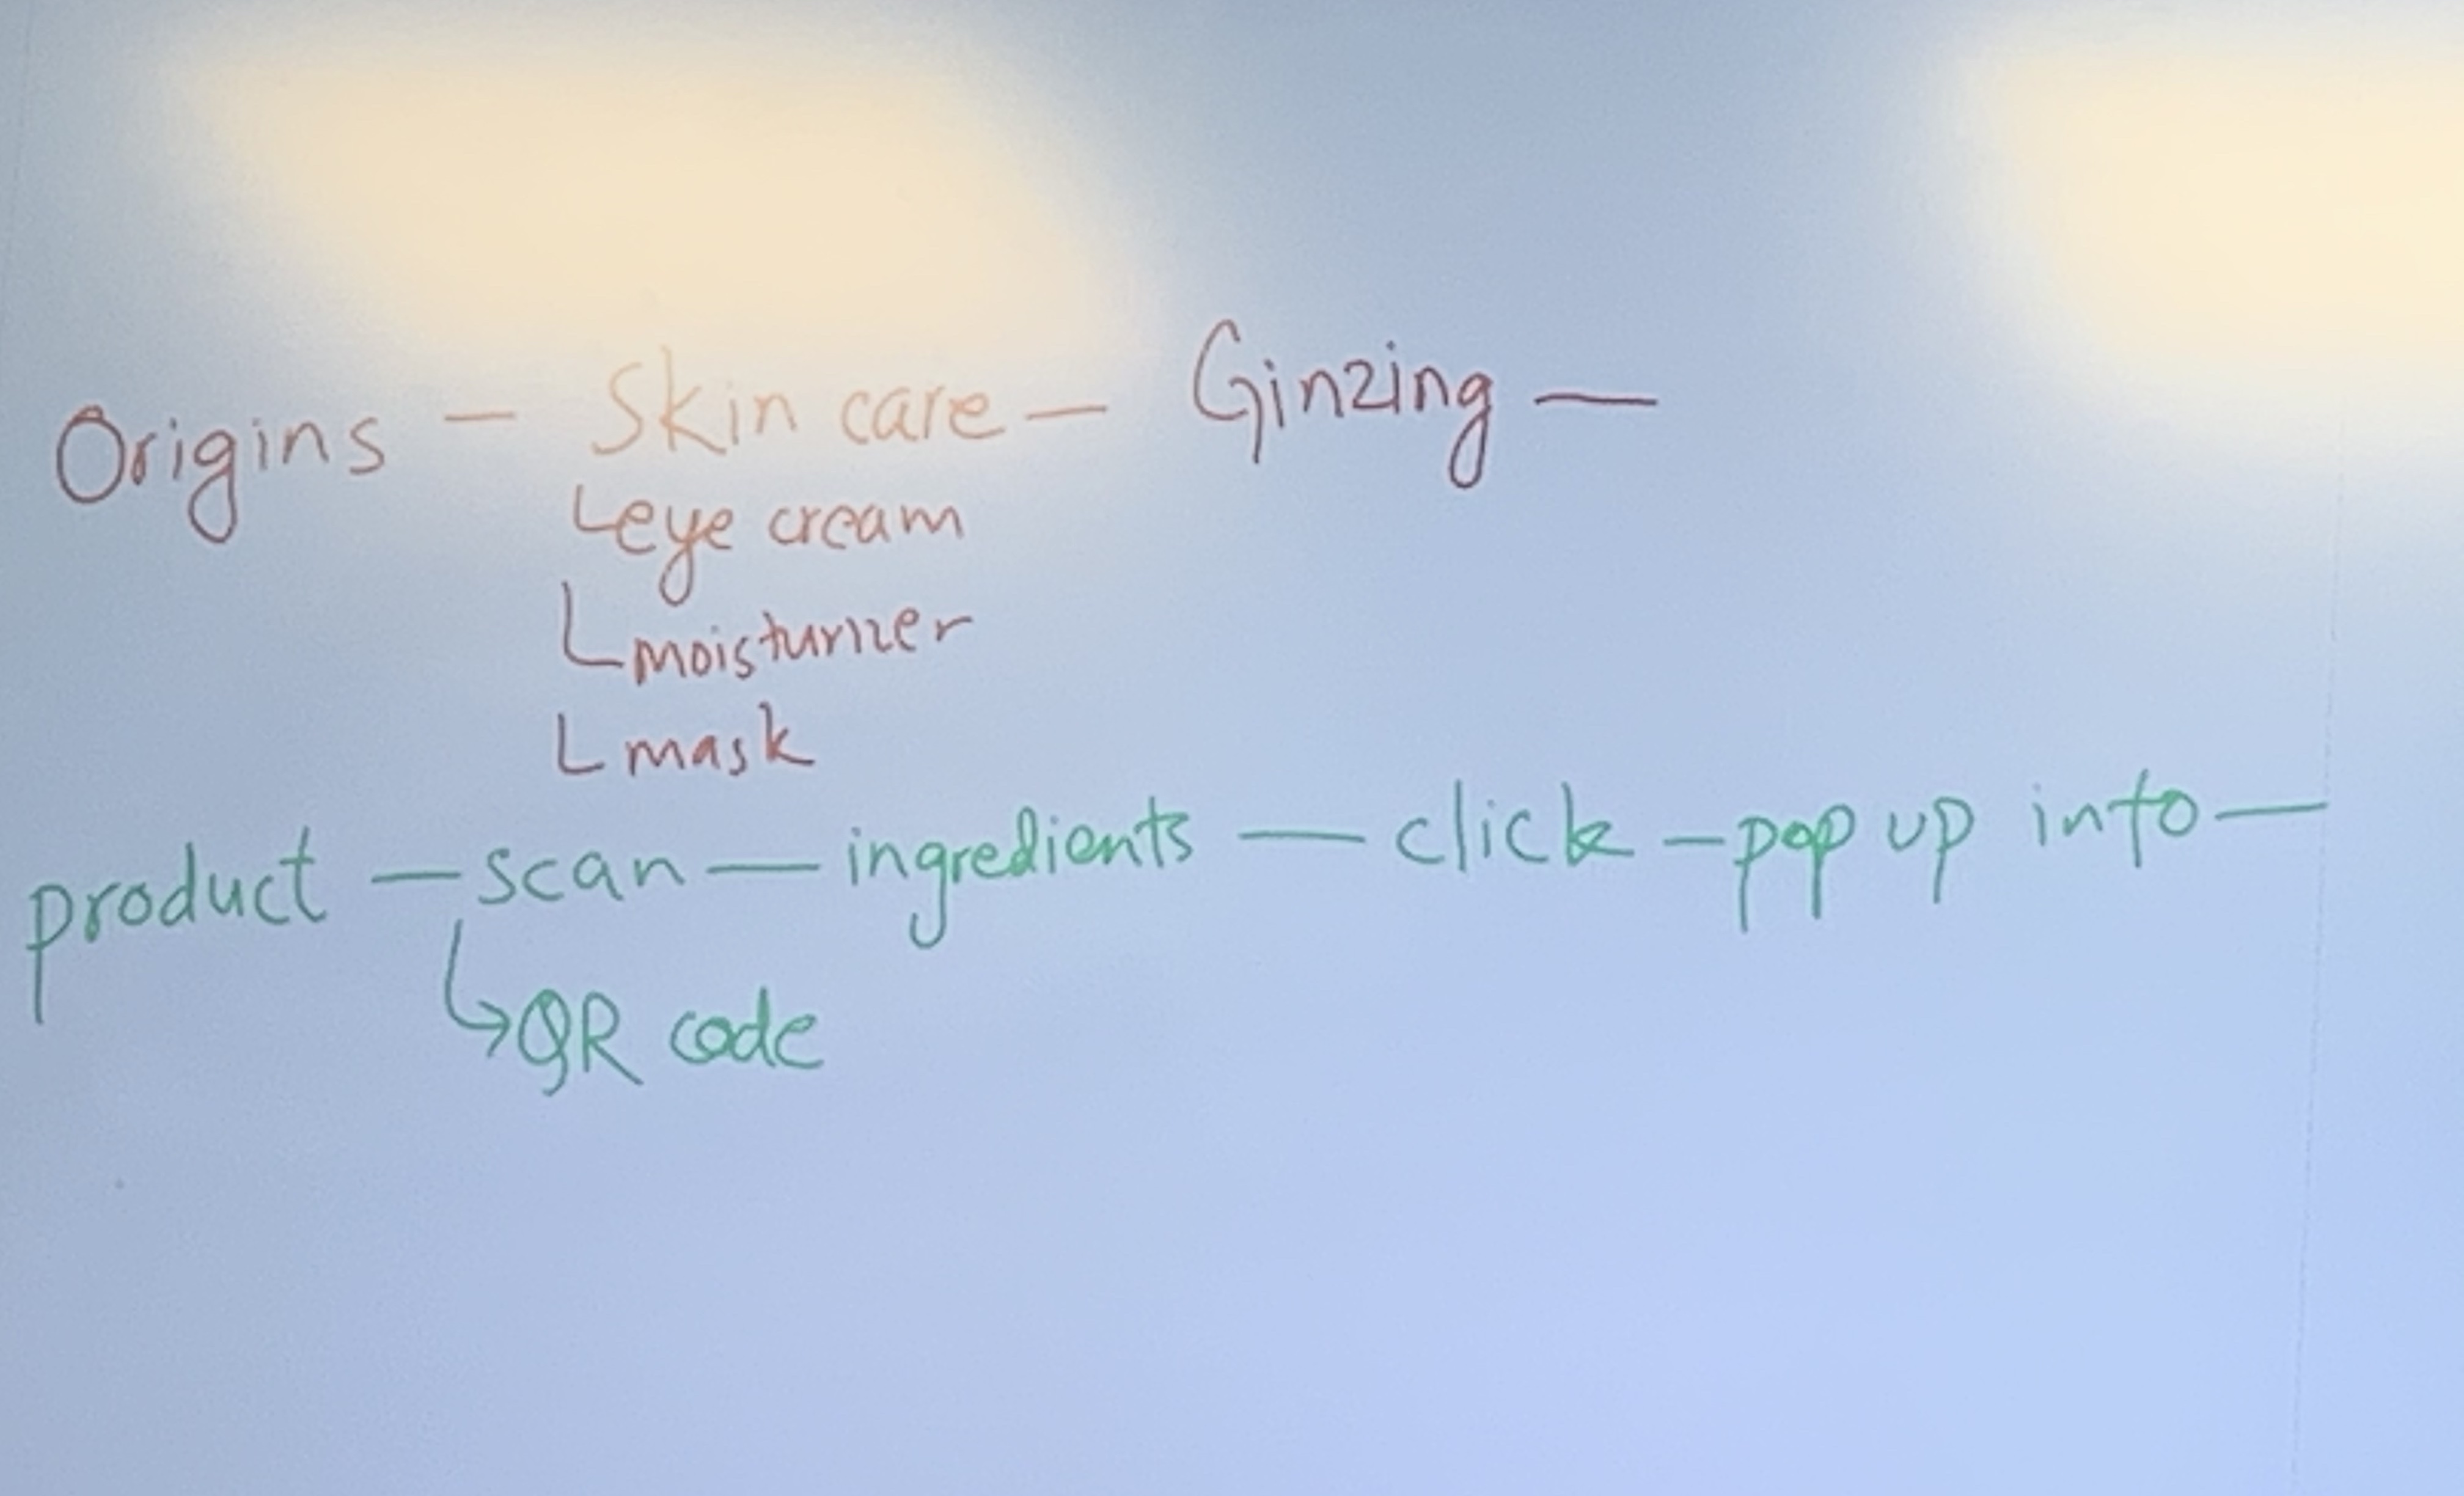 Origins — Skin care — Ginzing —
eye cream
moisturizer
mask
product — scan — ingredients — click — pop up info —
QR code